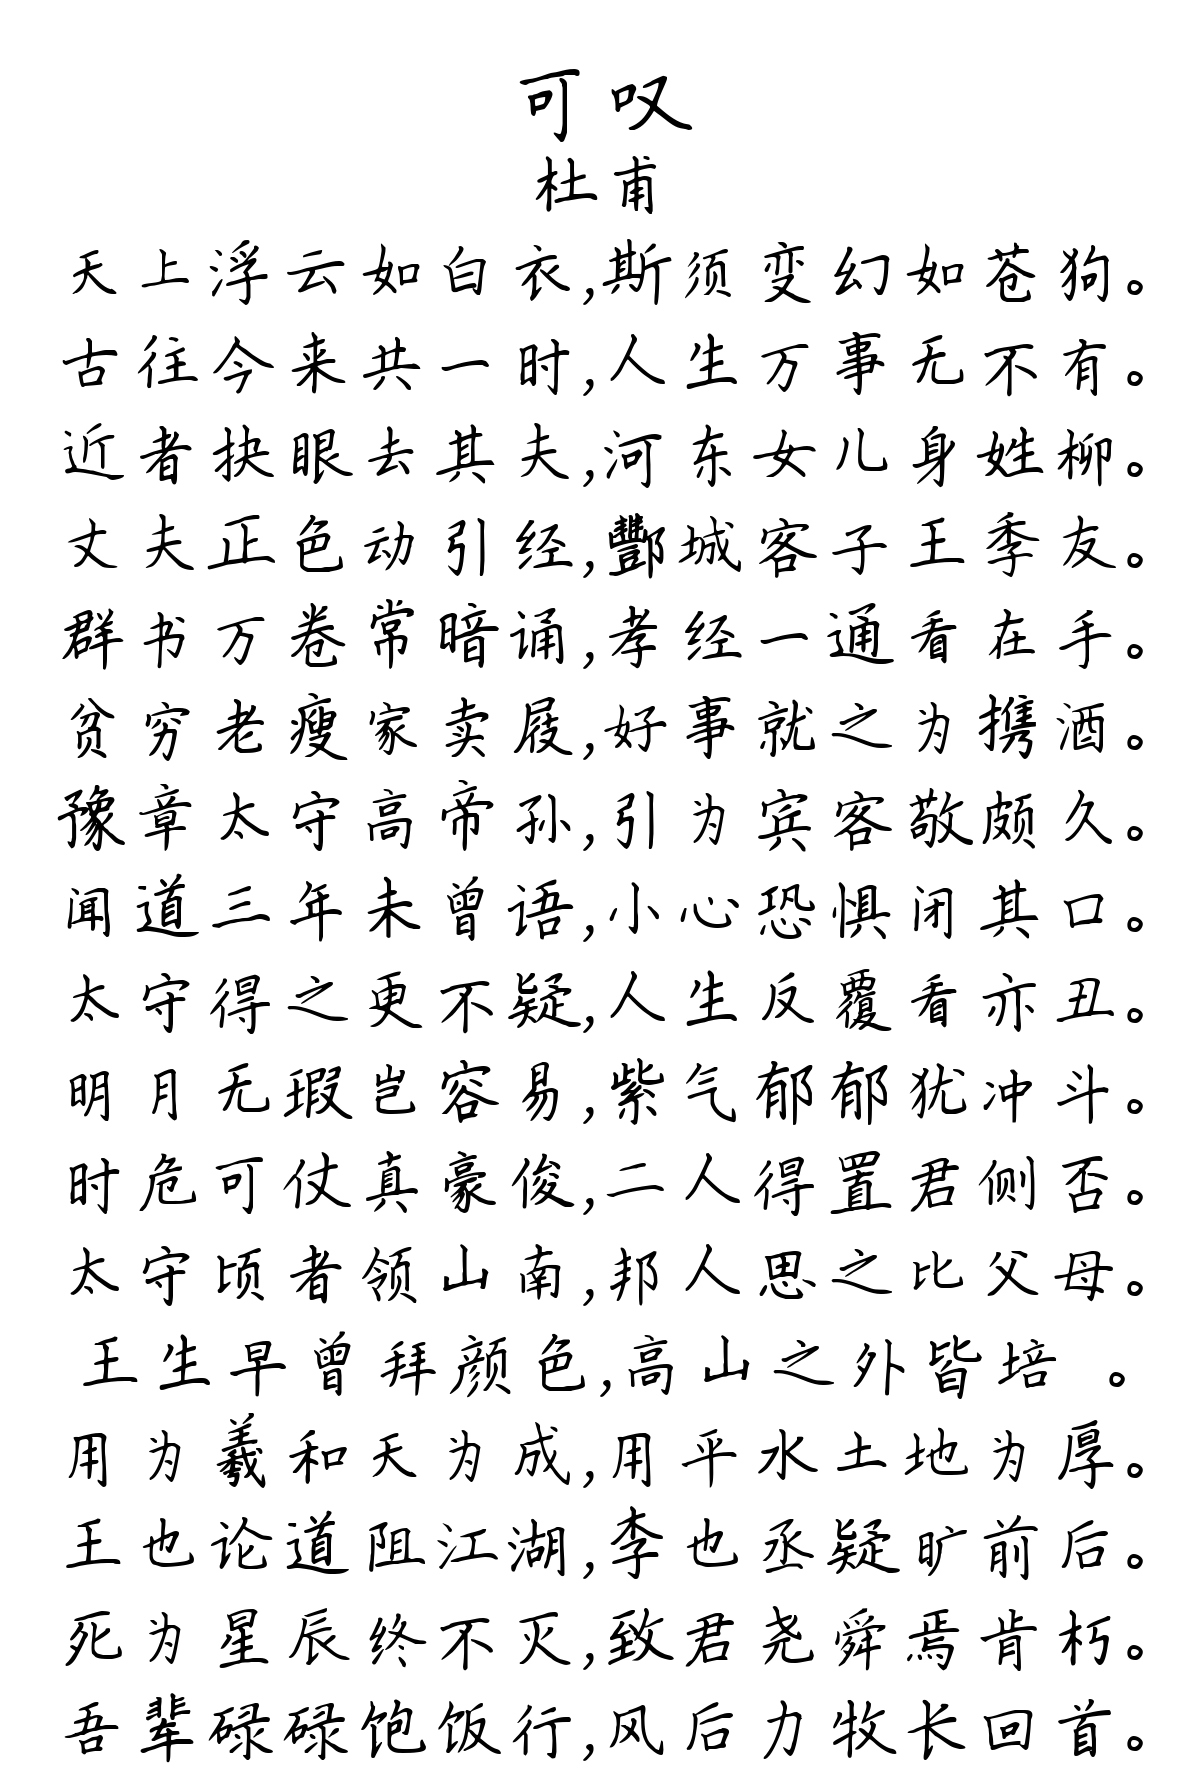 可叹
杜甫
天上浮云如白衣,斯须变幻如苍狗。
古往今来共一时,人生万事无不有。
近者抉眼去其夫,河东女儿身姓柳。
丈夫正色动引经,酆城客子王季友。
群书万卷常暗诵,孝经一通看在手。
贫穷老瘦家卖屐,好事就之为携酒。
豫章太守高帝孙,引为宾客敬颇久。
闻道三年未曾语,小心恐惧闭其口。
太守得之更不疑,人生反覆看亦丑。
明月无瑕岂容易,紫气郁郁犹冲斗。
时危可仗真豪俊,二人得置君侧否。
太守顷者领山南,邦人思之比父母。
王生早曾拜颜色,高山之外皆培 。
用为羲和天为成,用平水土地为厚。
王也论道阻江湖,李也丞疑旷前后。
死为星辰终不灭,致君尧舜焉肯朽。
吾辈碌碌饱饭行,风后力牧长回首。